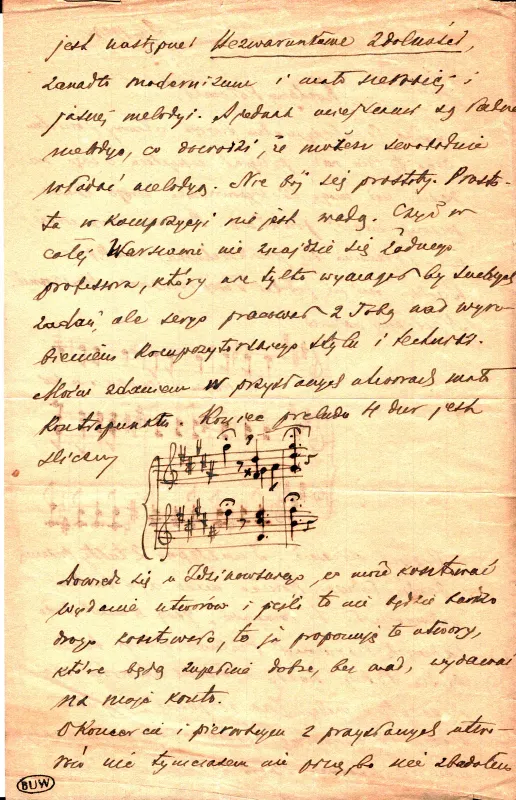 jest następne! Bezwarunkowe zdolności,
zanadto modernizmu i mało szerokiej i
jasnej melodyi. A jednak miejscami są ładne
melodye, co dowodzi, że możesz swobodnie
władać melodyą. Nie bój się prostoty. Prosto-
ta w kompozycyi nie jest wadą. Czyż w
całej Warszawie nie znajdzie się żadnego
professora, który nie tylko wymagał by suchych
zadań, ale seryo pracował z Tobą nad wyro-
bieniem kompozytorskiego stylu i techniki.
Moim zdaniem w przysłanych utworach mało
kontrapunktu. Koniec preludu H dur jest
śliczny
Dowiedz się u Idzikowskiego, co może kosztować
wydanie utworów i jeśli to nie będzie bardzo
drogo kosztowało, to ja proponuję te utwory,
które będą zupełnie dobre, bez wad, wydawać
na moje konto.
O Koncercie i pierwszym z przysłanych utwo-
rów nic tymczasem nie piszę, bo nie zbadałem
BUW